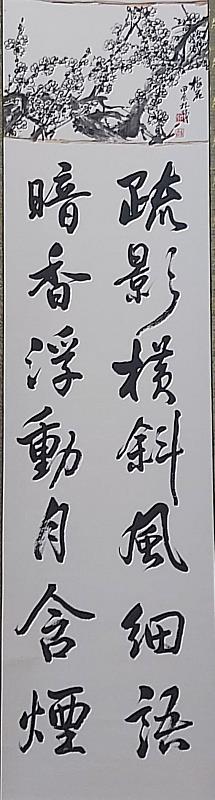 疏影橫斜風細語
暗香浮動月含煙